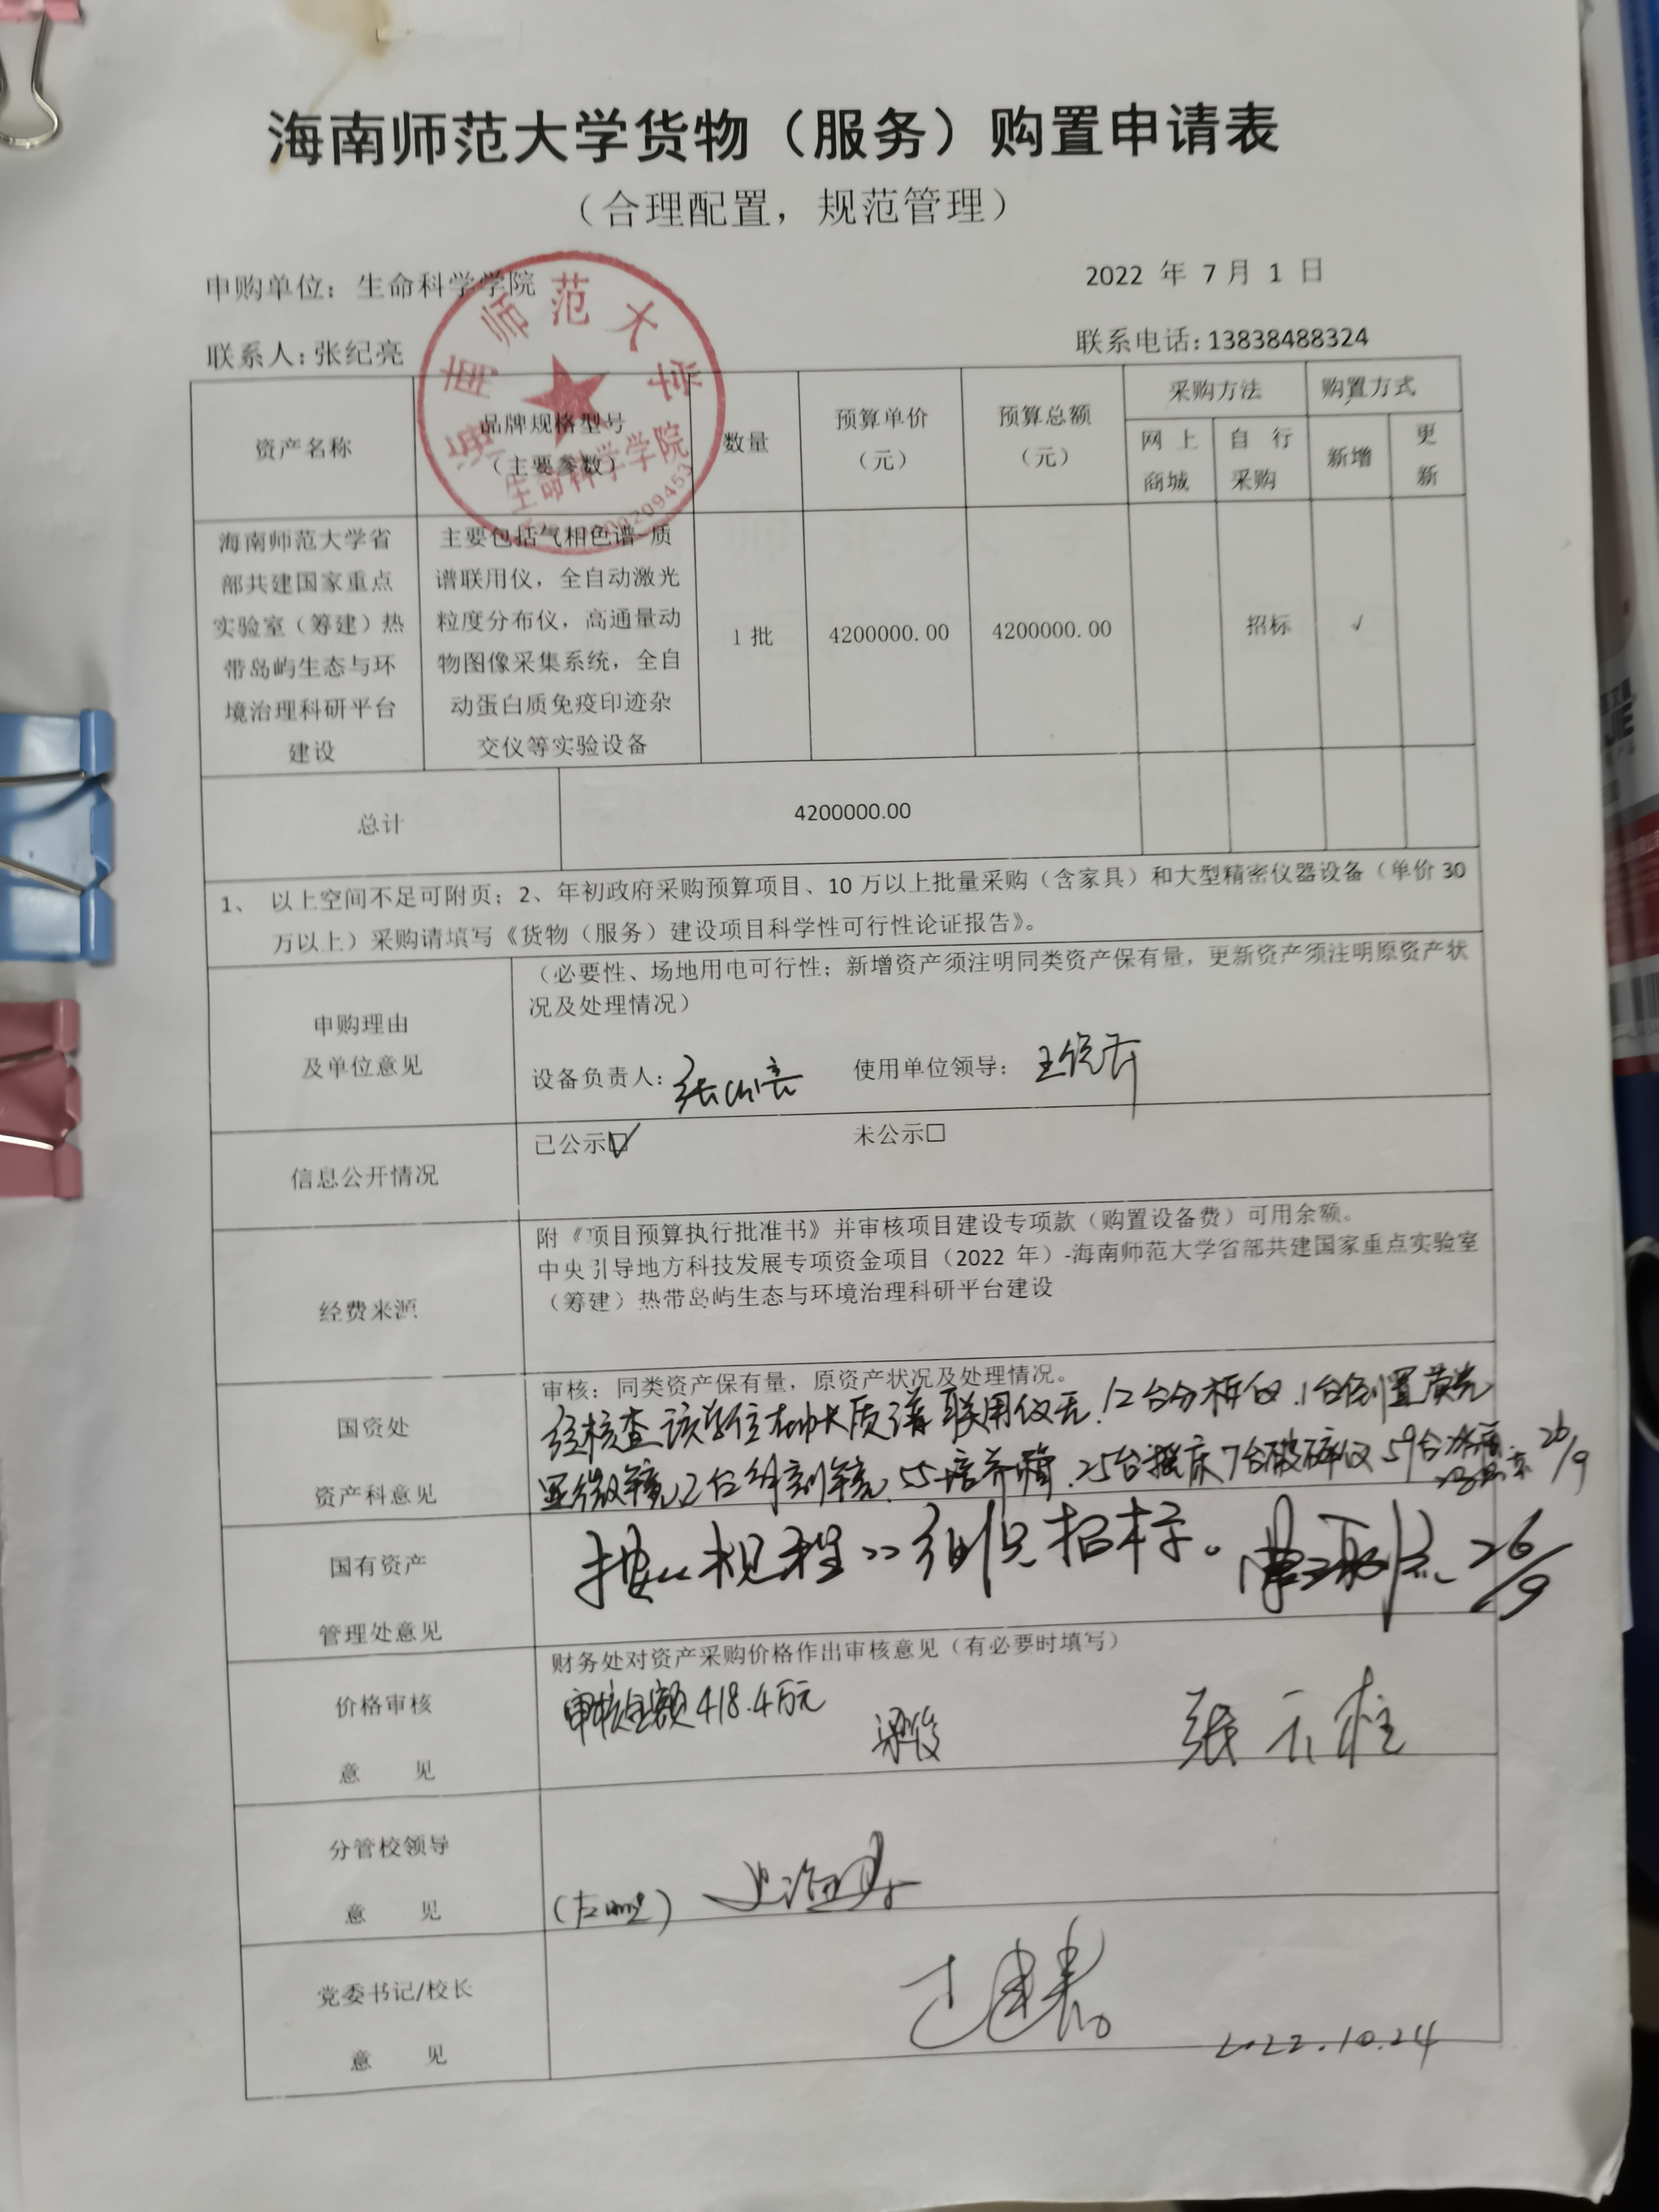 海南师范大学货物（服务）购置申请表
（合理配置，规范管理）
申购单位：生命科学学院
2022 年 7 月 1 日
联系人：张纪亮
联系电话：13838488324
海南师范大学
生命科学学院
资产名称
品牌规格型号
（主要参数）
数量
预算单价
（元）
预算总额
（元）
采购方法
购置方式
网上
商城
自行
采购
新增
更
新
海南师范大学省
部共建国家重点
实验室（筹建）热
带岛屿生态与环
境治理科研平台
建设
主要包括气相色谱-质
谱联用仪，全自动激光
粒度分布仪，高通量动
物图像采集系统，全自
动蛋白质免疫印迹杂
交仪等实验设备
1 批
4200000.00
4200000.00
招标
√
总计
4200000.00
1、 以上空间不足可附页；2、年初政府采购预算项目、10 万以上批量采购（含家具）和大型精密仪器设备（单价 30
万以上）采购请填写《货物（服务）建设项目科学性可行性论证报告》。
申购理由
及单位意见
（必要性、场地用电可行性；新增资产须注明同类资产保有量，更新资产须注明原资产状
况及处理情况）
设备负责人：
使用单位领导：
信息公开情况
已公示☑
未公示□
经费来源
附《项目预算执行批准书》并审核项目建设专项款（购置设备费）可用余额。
中央引导地方科技发展专项资金项目（2022 年）-海南师范大学省部共建国家重点实验室
（筹建）热带岛屿生态与环境治理科研平台建设
国资处
资产科意见
审核：同类资产保有量，原资产状况及处理情况。
经核查该单位 质谱联用仪无，12台分析仪，1台倒置荧光
显微镜，2台 镜，55培养箱，25台摇床 7台破碎仪 59台冰箱
26/9
国有资产
管理处意见
按《规程》组织招标。
26/9
价格审核
意 见
财务处对资产采购价格作出审核意见（有必要时填写）
审核金额418.4万元
分管校领导
意 见
党委书记/校长
意 见
2022.10.24